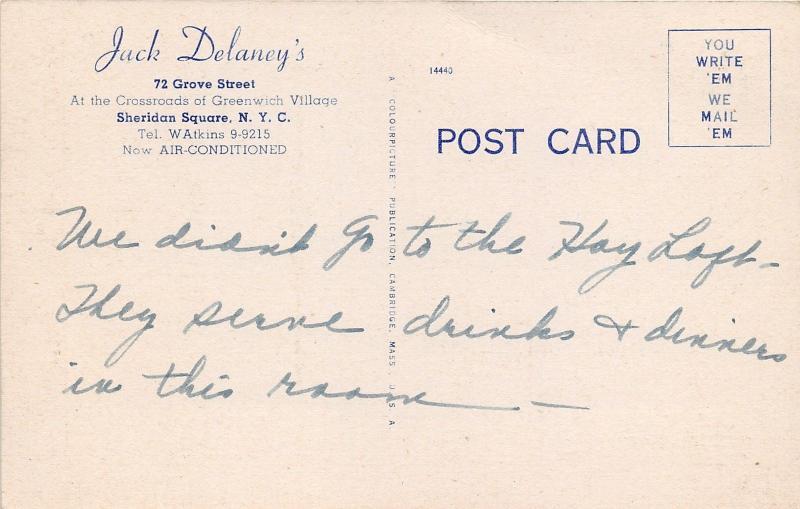 Jack Delaney's
72 Grove Street
At the Crossroads of Greenwich Village
Sheridan Square, N. Y. C.
Tel. WAtkins 9-9215
Now AIR-CONDITIONED
14440
POST CARD
YOU
WRITE
'EM
WE
MAIL
'EM
A COLOURPICTURE PUBLICATION, CAMBRIDGE, MASS. U. S. A.
We didn't go to the Hay Loft –
They serve drinks & dinners
in this room —